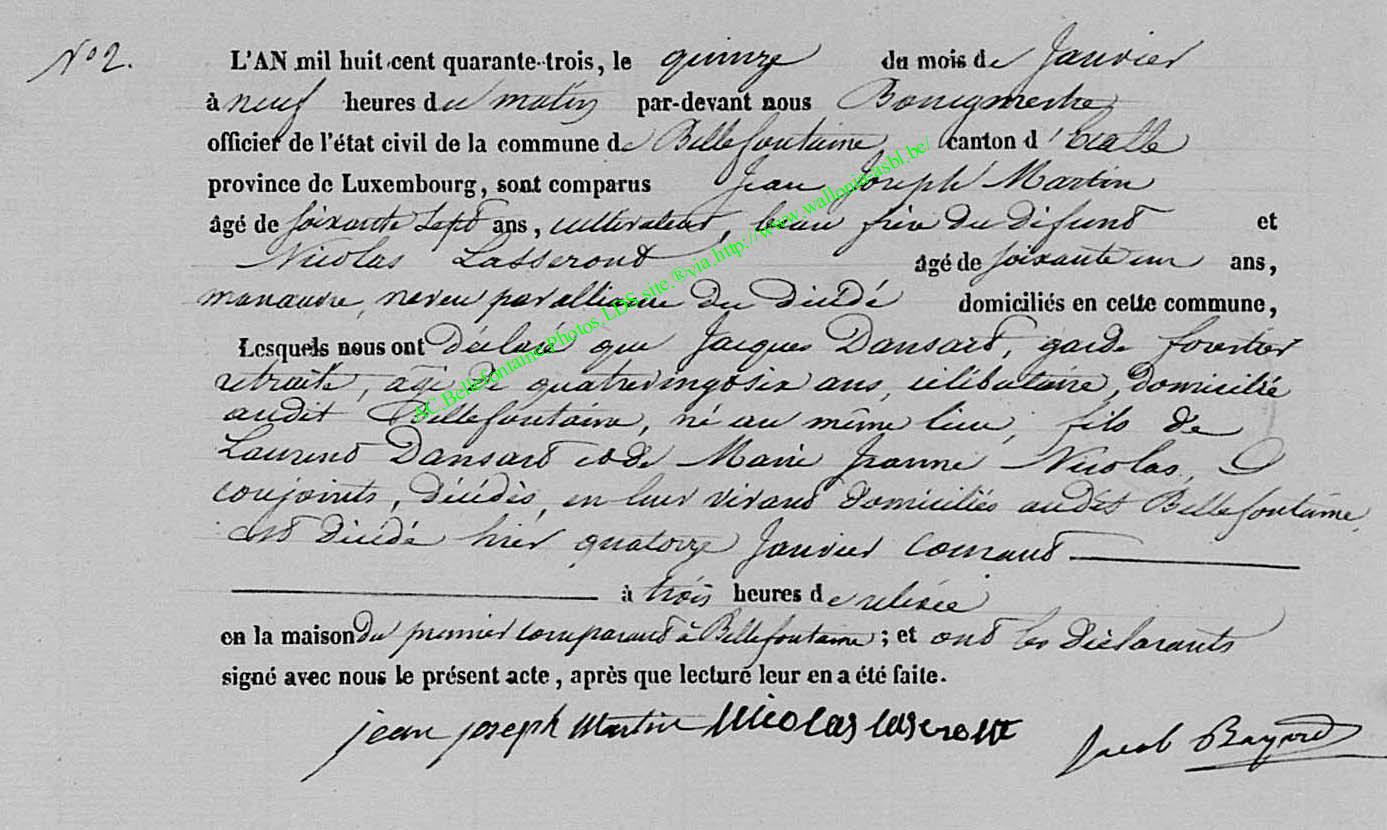 N° 2.
L'AN mil huit cent quarante-trois, le quinze du mois de Janvier
à neuf heures du matin par-devant nous Bourgmestre
officier de l'état civil de la commune de Bellefontaine, canton d'Etalle
province de Luxembourg, sont comparus Jean Joseph Martin
âgé de soixante sept ans, cultivateur, beau frère du défunt et
Nicolas Lasseront âgé de soixante un ans,
manœuvre, neveu par alliance du décédé domiciliés en cette commune,
Lesquels nous ont déclaré que Jacques Dansard, garde forestier
retraité, âgé de quatrevingosix ans, célibataire, domicilié
audit Bellefontaine, né au même lieu, fils de
Laurent Dansard et de Marie Jeanne Nicolas,
conjoints, décédés, en leur vivant domiciliés audit Bellefontaine,
est décédé hier quatorze Janvier courant
à trois heures de relevée
en la maison du premier comparant à Bellefontaine ; et ont les déclarants
signé avec nous le présent acte, après que lecture leur en a été faite.
jean joseph Martin Nicolas Jacob Bayard
AC.Bellefontaine.Photos.LDS.site.®via.http://www.wallonia-asbl.be/